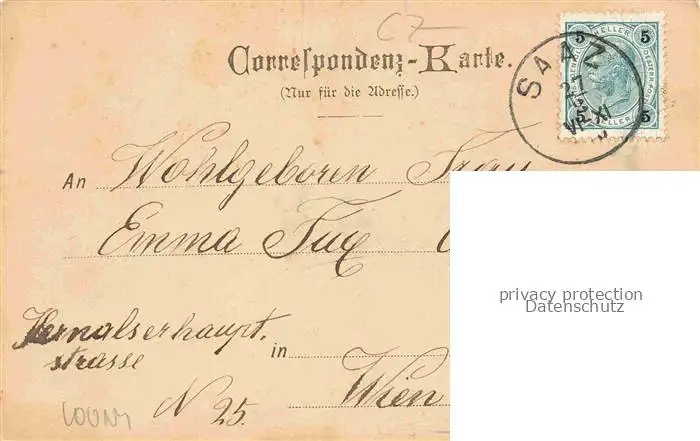 CZ
Correspondenz-Karte.
(Nur für die Adresse.)
5 HELLER 5
5 HELLER 5
SAAZ
An Wohlgeboren Frau
Emma Fux
Hernalserhaupt,
strasse
in Wien
N 25.
privacy protection
Datenschutz